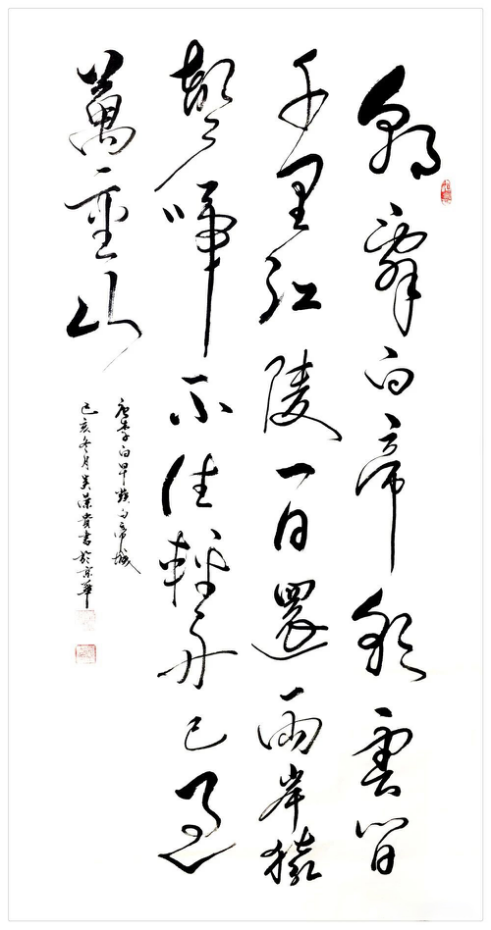 朝辭白帝彩雲間
千里江陵一日還兩岸猿
聲啼不住輕舟已過
萬重山
唐李白早發白帝城
己亥冬月吴貴書於京華